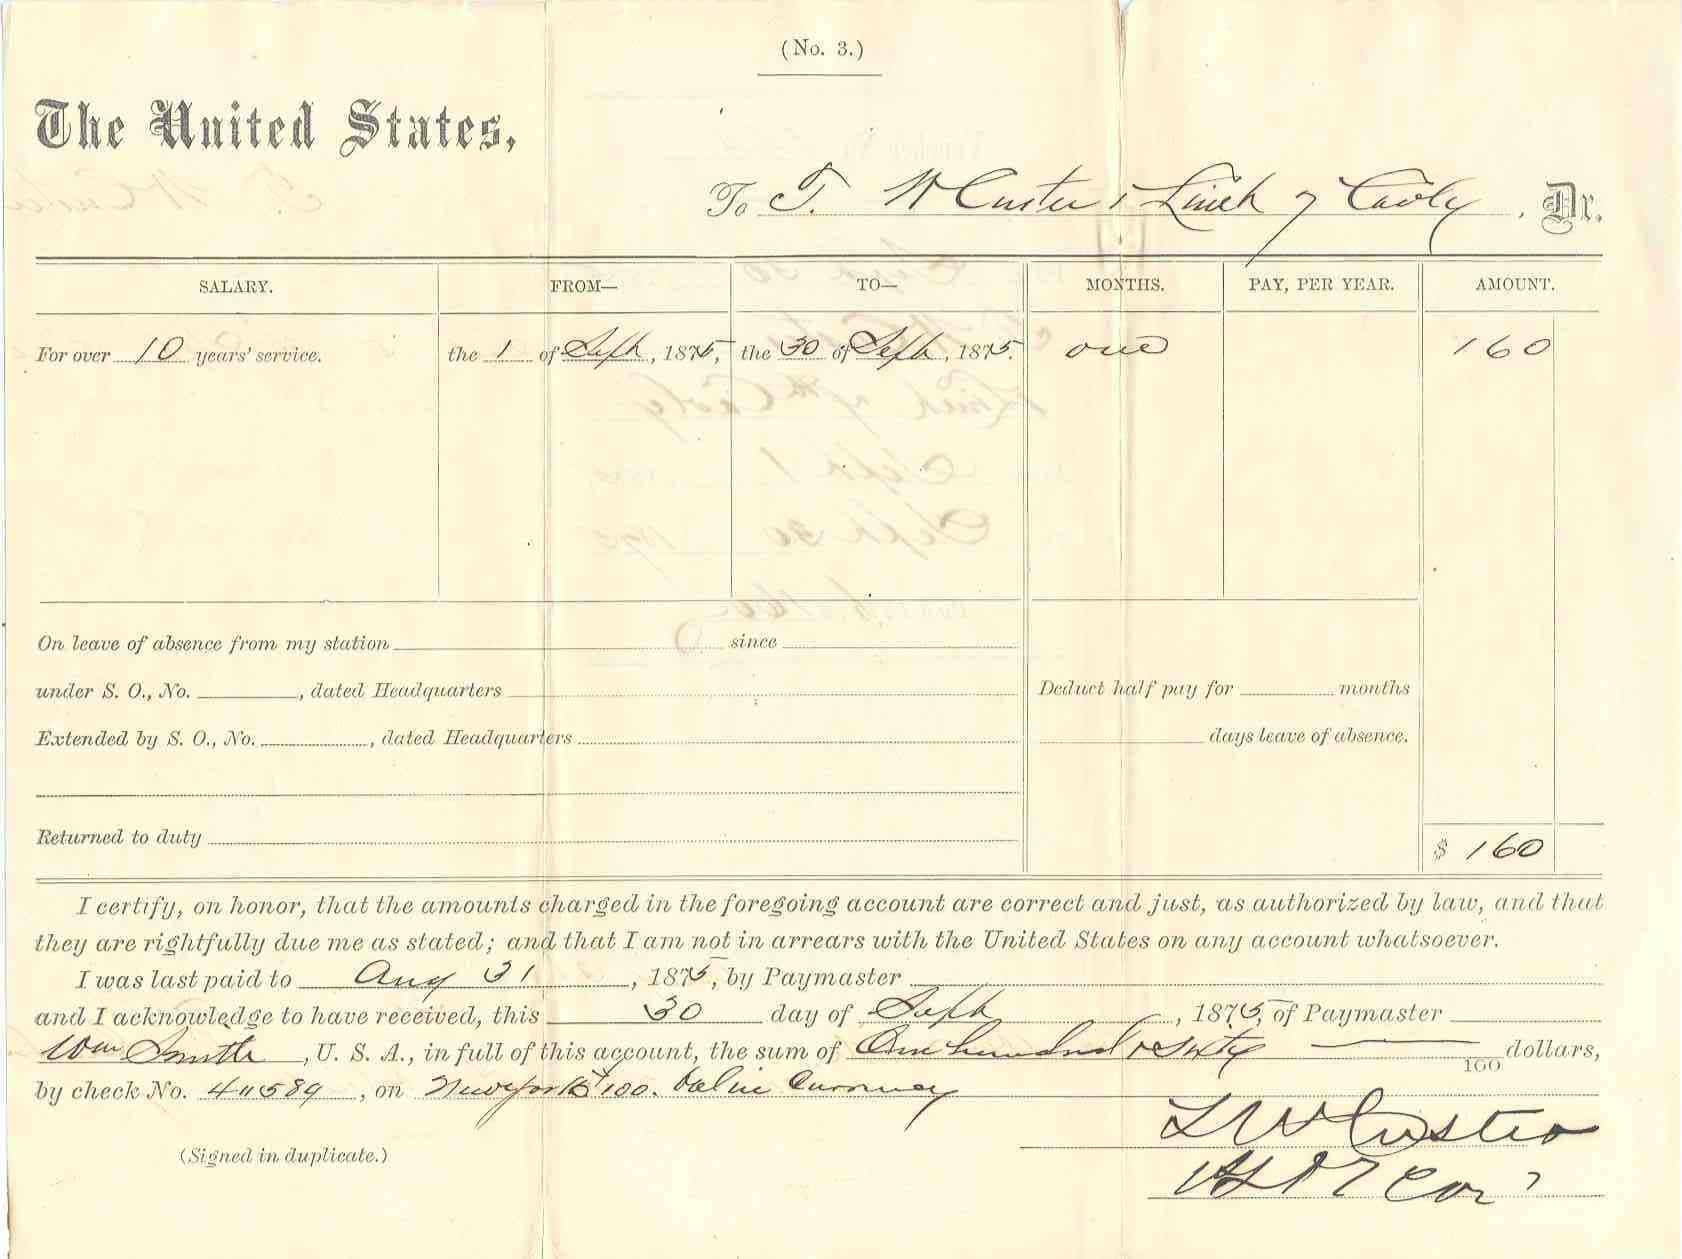 (No. 3.)
The United States,
To T. W Custer 1 Lieut 7 Cavly, Dr.
SALARY. FROM— TO— MONTHS. PAY, PER YEAR. AMOUNT.
For over 10 years' service. the 1 of Sept, 1875, the 30 of Sept, 1875. one 160
On leave of absence from my station since
under S. O., No. , dated Headquarters Deduct half pay for months
Extended by S. O., No. , dated Headquarters days leave of absence.
Returned to duty $ 160
I certify, on honor, that the amounts charged in the foregoing account are correct and just, as authorized by law, and that
they are rightfully due me as stated; and that I am not in arrears with the United States on any account whatsoever.
I was last paid to Aug 31, 1875, by Paymaster
and I acknowledge to have received, this 30 day of Sept, 1875, of Paymaster
Wm Smith, U. S. A., in full of this account, the sum of One hundred & sixty — /100 dollars,
by check No. , on New York 100. Currency
(Signed in duplicate.) T W Custer